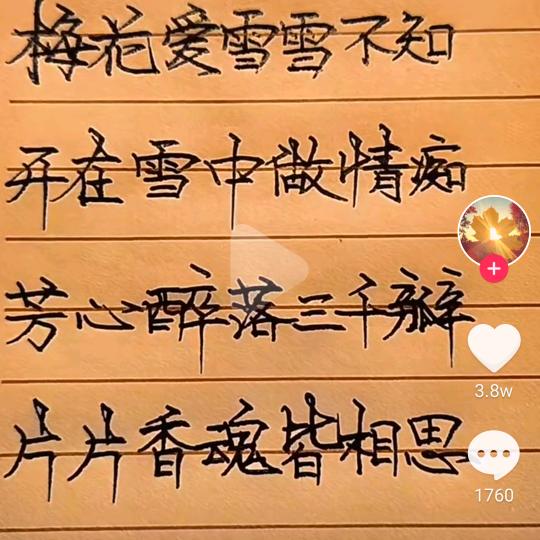 梅花爱雪雪不知
开在雪中做情痴
芳心醉落三千瓣
片片香魂皆相思
3.8w
1760